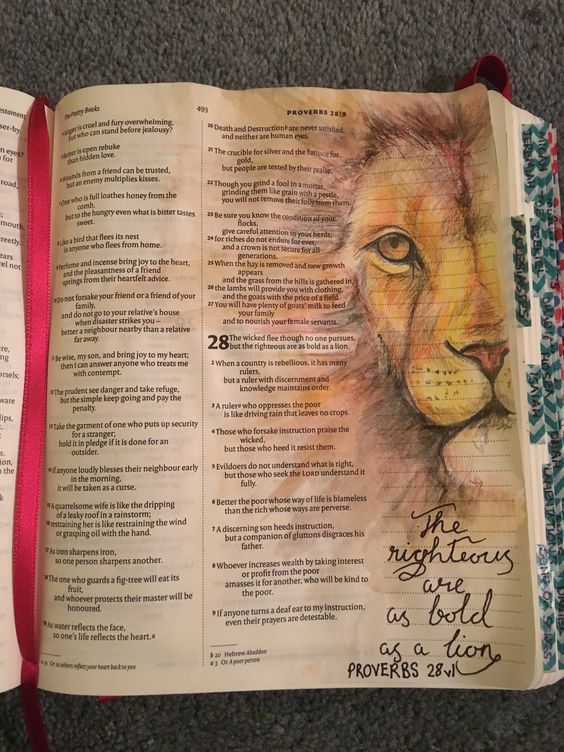 The Poetry Books
493
PROVERBS 28:9
4 Anger is cruel and fury overwhelming,
but who can stand before jealousy?
5 Better is open rebuke
than hidden love.
6 Wounds from a friend can be trusted,
but an enemy multiplies kisses.
7 One who is full loathes honey from the
comb,
but to the hungry even what is bitter tastes
sweet.
8 Like a bird that flees its nest
is anyone who flees from home.
9 Perfume and incense bring joy to the heart,
and the pleasantness of a friend
springs from their heartfelt advice.
10 Do not forsake your friend or a friend of your
family,
and do not go to your relative's house
when disaster strikes you—
better a neighbour nearby than a relative
far away.
11 Be wise, my son, and bring joy to my heart;
then I can answer anyone who treats me
with contempt.
12 The prudent see danger and take refuge,
but the simple keep going and pay the
penalty.
13 Take the garment of one who puts up security
for a stranger;
hold it in pledge if it is done for an
outsider.
14 If anyone loudly blesses their neighbour early
in the morning,
it will be taken as a curse.
15 A quarrelsome wife is like the dripping
of a leaky roof in a rainstorm;
16 restraining her is like restraining the wind
or grasping oil with the hand.
17 As iron sharpens iron,
so one person sharpens another.
18 The one who guards a fig-tree will eat its
fruit,
and whoever protects their master will be
honoured.
19 As water reflects the face,
so one's life reflects the heart.a
a 19 Or so others reflect your heart back to you
20 Death and Destructionb are never satisfied,
and neither are human eyes.
21 The crucible for silver and the furnace for
gold,
but people are tested by their praise.
22 Though you grind a fool in a mortar,
grinding them like grain with a pestle,
you will not remove their folly from them.
23 Be sure you know the condition of your
flocks,
give careful attention to your herds;
24 for riches do not endure for ever,
and a crown is not secure for all
generations.
25 When the hay is removed and new growth
appears
and the grass from the hills is gathered in,
26 the lambs will provide you with clothing,
and the goats with the price of a field.
27 You will have plenty of goats' milk to feed
your family
and to nourish your female servants.
28 The wicked flee though no one pursues,
but the righteous are as bold as a lion.
2 When a country is rebellious, it has many
rulers,
but a ruler with discernment and
knowledge maintains order.
3 A rulera who oppresses the poor
is like driving rain that leaves no crops.
4 Those who forsake instruction praise the
wicked,
but those who heed it resist them.
5 Evildoers do not understand what is right,
but those who seek the LORD understand it
fully.
6 Better the poor whose way of life is blameless
than the rich whose ways are perverse.
7 A discerning son heeds instruction,
but a companion of gluttons disgraces his
father.
8 Whoever increases wealth by taking interest
or profit from the poor
amasses it for another, who will be kind to
the poor.
9 If anyone turns a deaf ear to my instruction,
even their prayers are detestable.
b 20 Hebrew Abaddon
a 3 Or A poor person
The
righteous
are
as bold
as a lion
PROVERBS 28v1